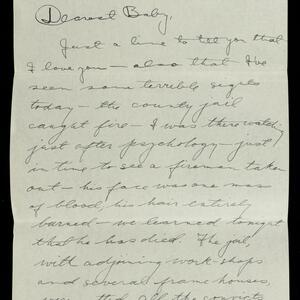 Dearest Baby,
Just a line to tell you that
I love you — also that I've
seen some terrible sights
today — the county jail
caught fire — I was there watching
just after psychology — just
in time to see a fireman taken
out — his face was one mass
of blood, his hair entirely
burned — we learned tonight
that he has died. The jail,
with adjoining work-shops
and several frame houses,
that all the convicts